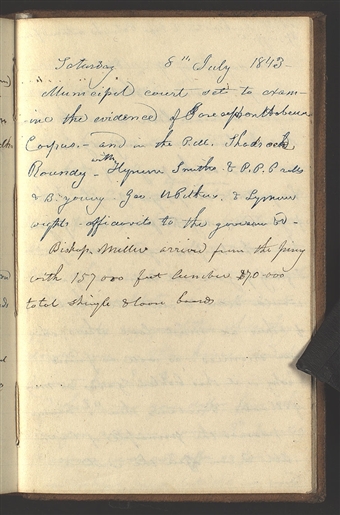 Saturday 8th July 1843
Municipal court sets to exam-
ine the evidence of Case upon the habeus
Corpus.- and in the P.M. Shadrach
Roundy - with Hyrum Smiths & P.P. Pratts
& B. young. Geo & Lyman
wights affidavits to the
Bishop Miller arrived from the Piney
with 157,000 feet lumber & 70,000
shingle & boards